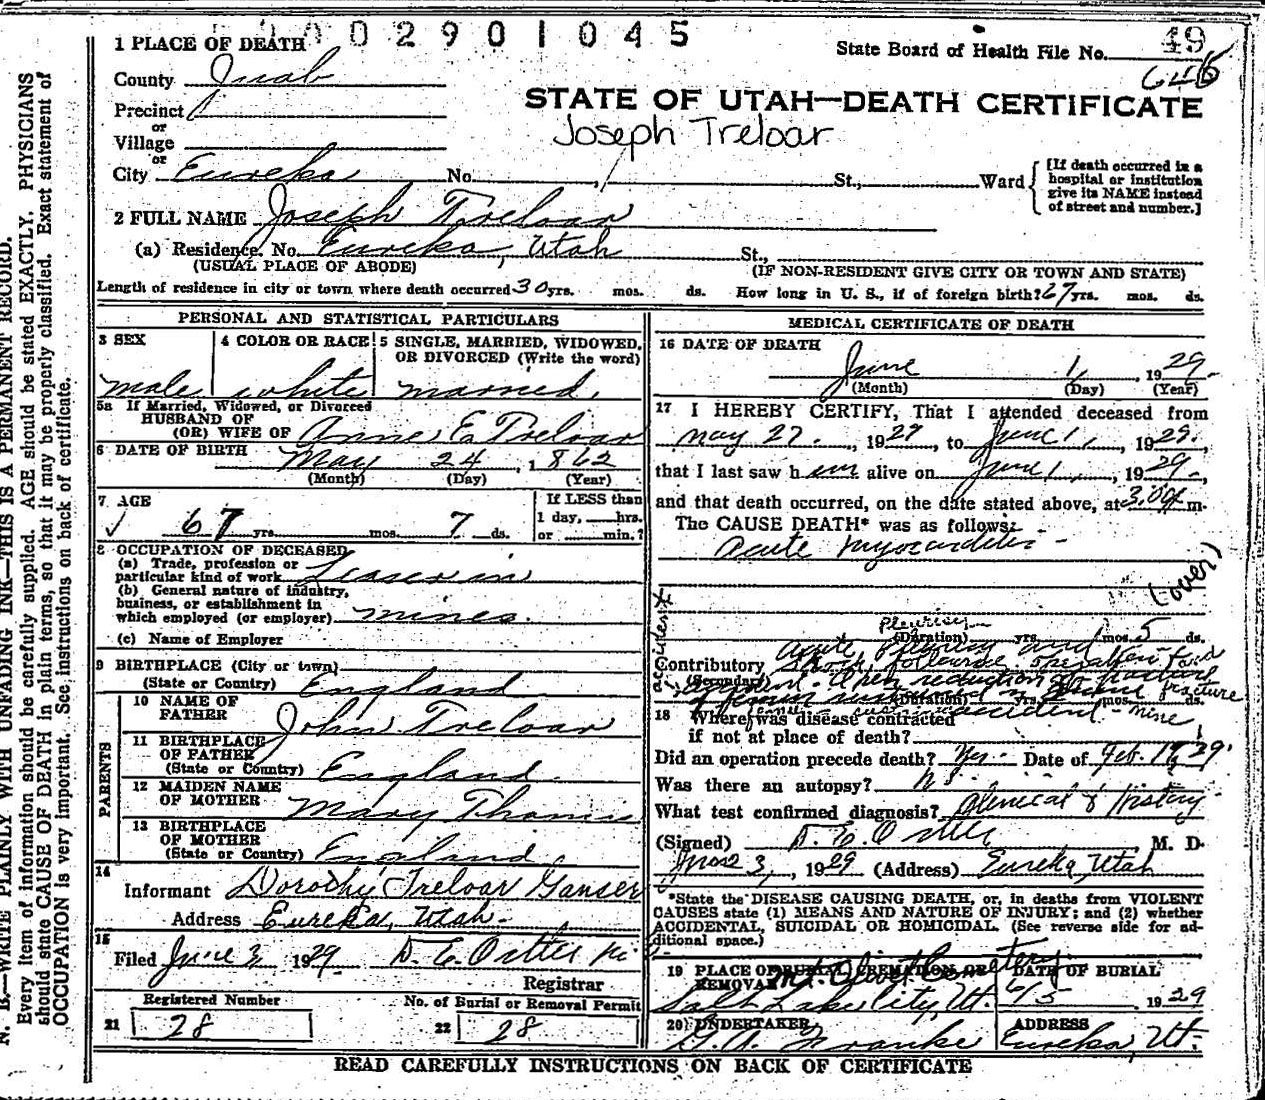 002901045
1 PLACE OF DEATH
State Board of Health File No. 49
County Juab
Precinct
STATE OF UTAH—DEATH CERTIFICATE
or
Village
Joseph Treloar
or
City Eureka No. St., Ward
[If death occurred in a
hospital or institution
give its NAME instead
of street and number.]
2 FULL NAME Joseph Treloar
(a) Residence. No. Eureka, Utah St.,
(USUAL PLACE OF ABODE) (IF NON-RESIDENT GIVE CITY OR TOWN AND STATE)
Length of residence in city or town where death occurred 30 yrs. mos. ds. How long in U. S., if of foreign birth? 67 yrs. mos. ds.
PERSONAL AND STATISTICAL PARTICULARS
3 SEX
male
4 COLOR OR RACE
white
5 SINGLE, MARRIED, WIDOWED,
OR DIVORCED (Write the word)
married.
5a If Married, Widowed, or Divorced
HUSBAND OF
(OR) WIFE OF Anne E Treloar
6 DATE OF BIRTH May 24, 1862
(Month) (Day) (Year)
7 AGE
67 yrs. mos. 7 ds.
If LESS than
1 day, hrs.
or min.?
8 OCCUPATION OF DECEASED
(a) Trade, profession or
particular kind of work Leaser in
(b) General nature of industry,
business, or establishment in
which employed (or employer) mines.
(c) Name of Employer
9 BIRTHPLACE (City or town)
(State or Country) England
PARENTS
10 NAME OF
FATHER John Treloar
11 BIRTHPLACE
OF FATHER
(State or Country) England
12 MAIDEN NAME
OF MOTHER Mary Thomas
13 BIRTHPLACE
OF MOTHER
(State or Country) England
14
Informant Dorothy Treloar Ganser
Address Eureka, Utah.
15
Filed June 3 1929 D. E. Ostler
Registrar
Registered Number
21 28
No. of Burial or Removal Permit
22 28
MEDICAL CERTIFICATE OF DEATH
16 DATE OF DEATH
June 1, 1929.
(Month) (Day) (Year)
17 I HEREBY CERTIFY, That I attended deceased from
May 27., 1929, to June 1, 1929.
that I last saw him alive on June 1, 1929,
and that death occurred, on the date stated above, at m.
The CAUSE DEATH* was as follows:
Acute Myocarditis
(over)
accident
Pleurisy
(Duration) yrs. 1 mos. 5 ds.
Contributory acute pleurisy and
(Secondary) shock following operation for
Open reduction of fracture
(Duration) yrs. mos. ds.
fracture
accident - mine
18 Where was disease contracted
if not at place of death?
Did an operation precede death? Yes Date of Feb. 1929.
Was there an autopsy? No
What test confirmed diagnosis? Clinical & History
(Signed) D. E. Ostler M. D.
June 3, 1929 (Address) Eureka, Utah
*State the DISEASE CAUSING DEATH, or, in deaths from VIOLENT
CAUSES state (1) MEANS AND NATURE OF INJURY; and (2) whether
ACCIDENTAL, SUICIDAL OR HOMICIDAL. (See reverse side for ad-
ditional space.)
19 PLACE OF BURIAL, CREMATION, OR
REMOVAL Mt. Olivet Cemetery
Salt Lake City, Ut.
DATE OF BURIAL
6/5 1929
20 UNDERTAKER
Franke
ADDRESS
Eureka, Ut.
READ CAREFULLY INSTRUCTIONS ON BACK OF CERTIFICATE
N. B.—WRITE PLAINLY WITH UNFADING INK—THIS IS A PERMANENT RECORD.
Every item of information should be carefully supplied. AGE should be stated EXACTLY. PHYSICIANS
should state CAUSE OF DEATH in plain terms, so that it may be properly classified. Exact statement of
OCCUPATION is very important. See instructions on back of certificate.